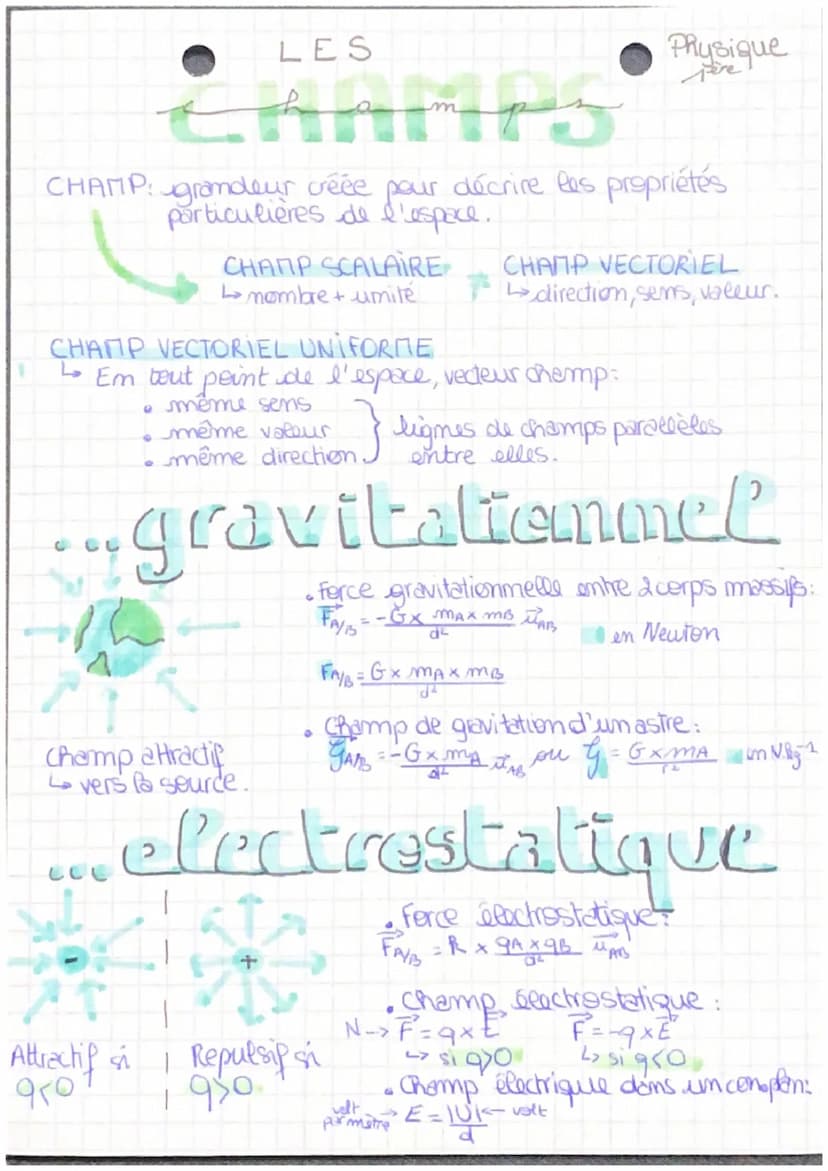 LES
Physique
1ère
CHAMPS
champs
CHAMP: grandeur créée pour décrire les propriétés
particulières de l'espace.
CHAMP SCALAIRE ≠ CHAMP VECTORIEL
↳ nombre + unité
↳ direction, sens, valeur.
CHAMP VECTORIEL UNIFORME
↳ En tout point de l'espace, vecteur champ:
• même sens
• même valeur
• même direction.
} lignes de champs parallèles
entre elles.
...gravitationnel
• Force gravitationnelle entre 2 corps massifs:
F⃗A/B = -G x mA x mB / d² u⃗AB
en Newton
FA/B = G x mA x mB / d²
• Champ de gravitation d'un astre:
g⃗A/B = -G x mA / d² u⃗AB ou G = G x mA / r² en N.kg⁻¹
Champ attractif
↳ vers la source.
...electrostatique
• Force électrostatique:
F⃗A/B = k x qA x qB / d² u⃗AB
• Champ électrostatique:
N -> F⃗ = q x E⃗ F⃗ = -q x E⃗
↳ si q>0 ↳ si q<0
- +
Attractif si
q<0
Repulsif si
q>0
• Champ électrique dans un cond plan:
volt par mètre → E = |U| / d ← volt